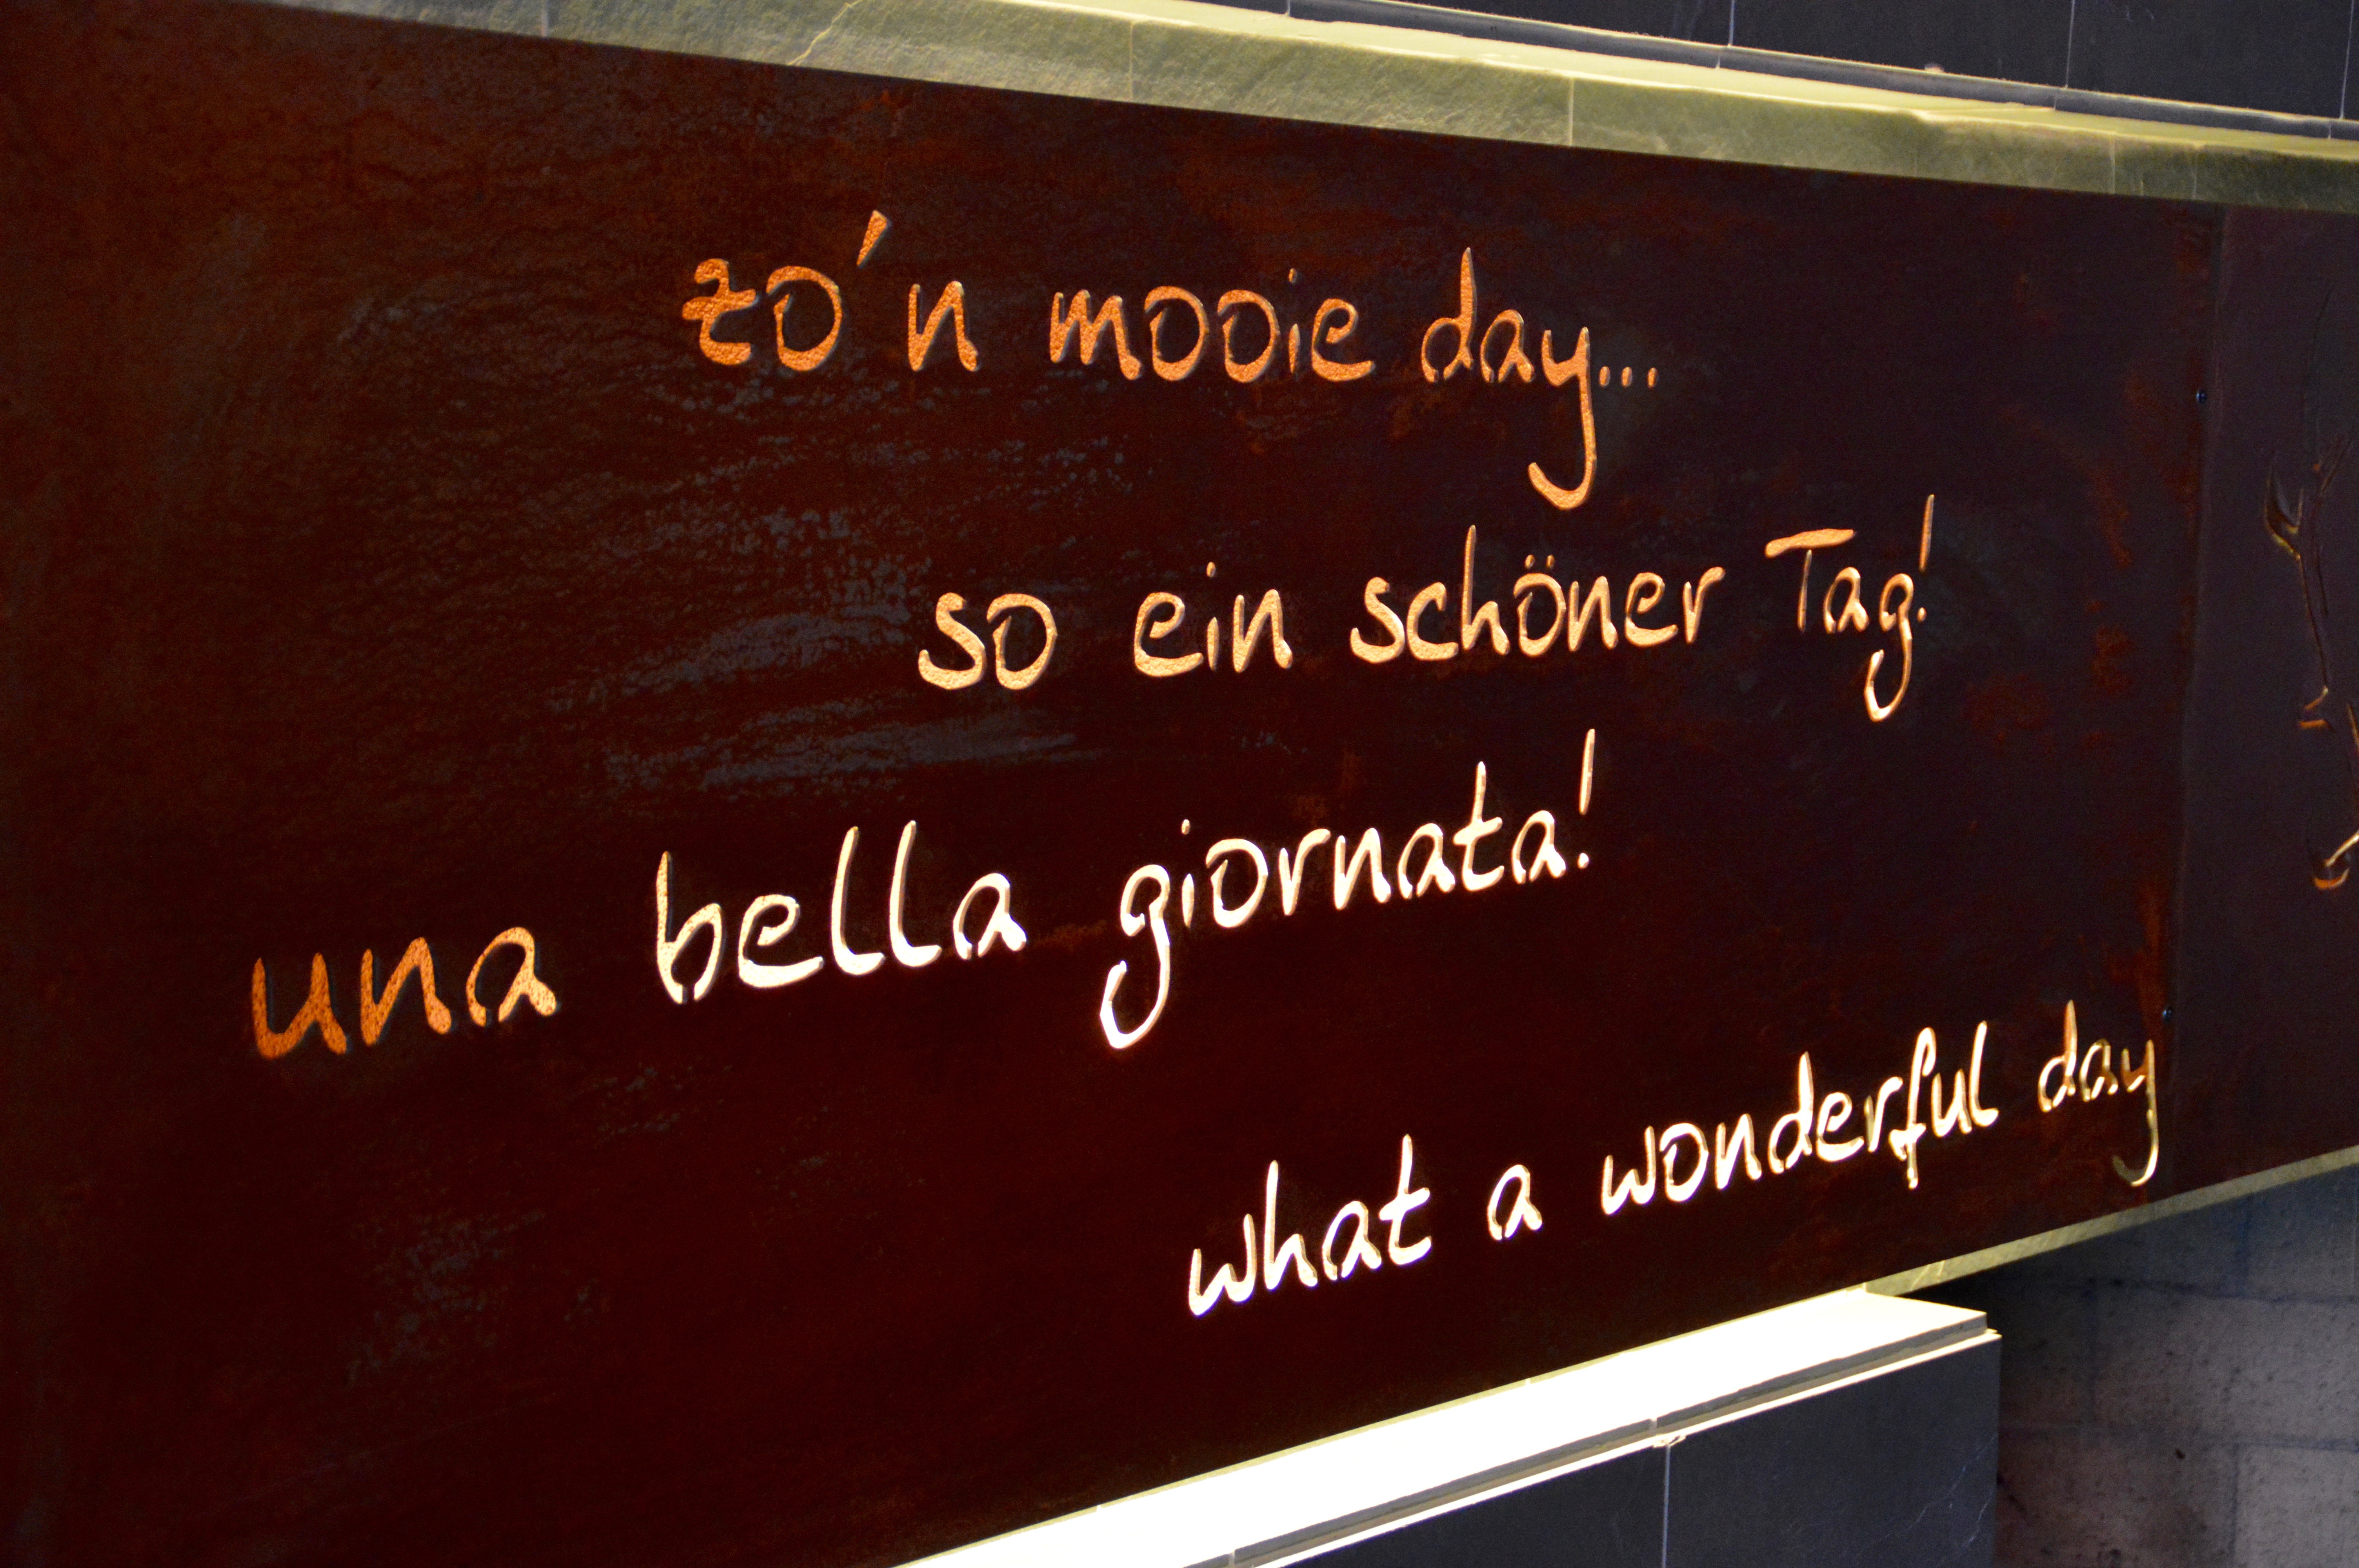 zo'n mooie day...
so ein schöner Tag!
una bella giornata!
what a wonderful day